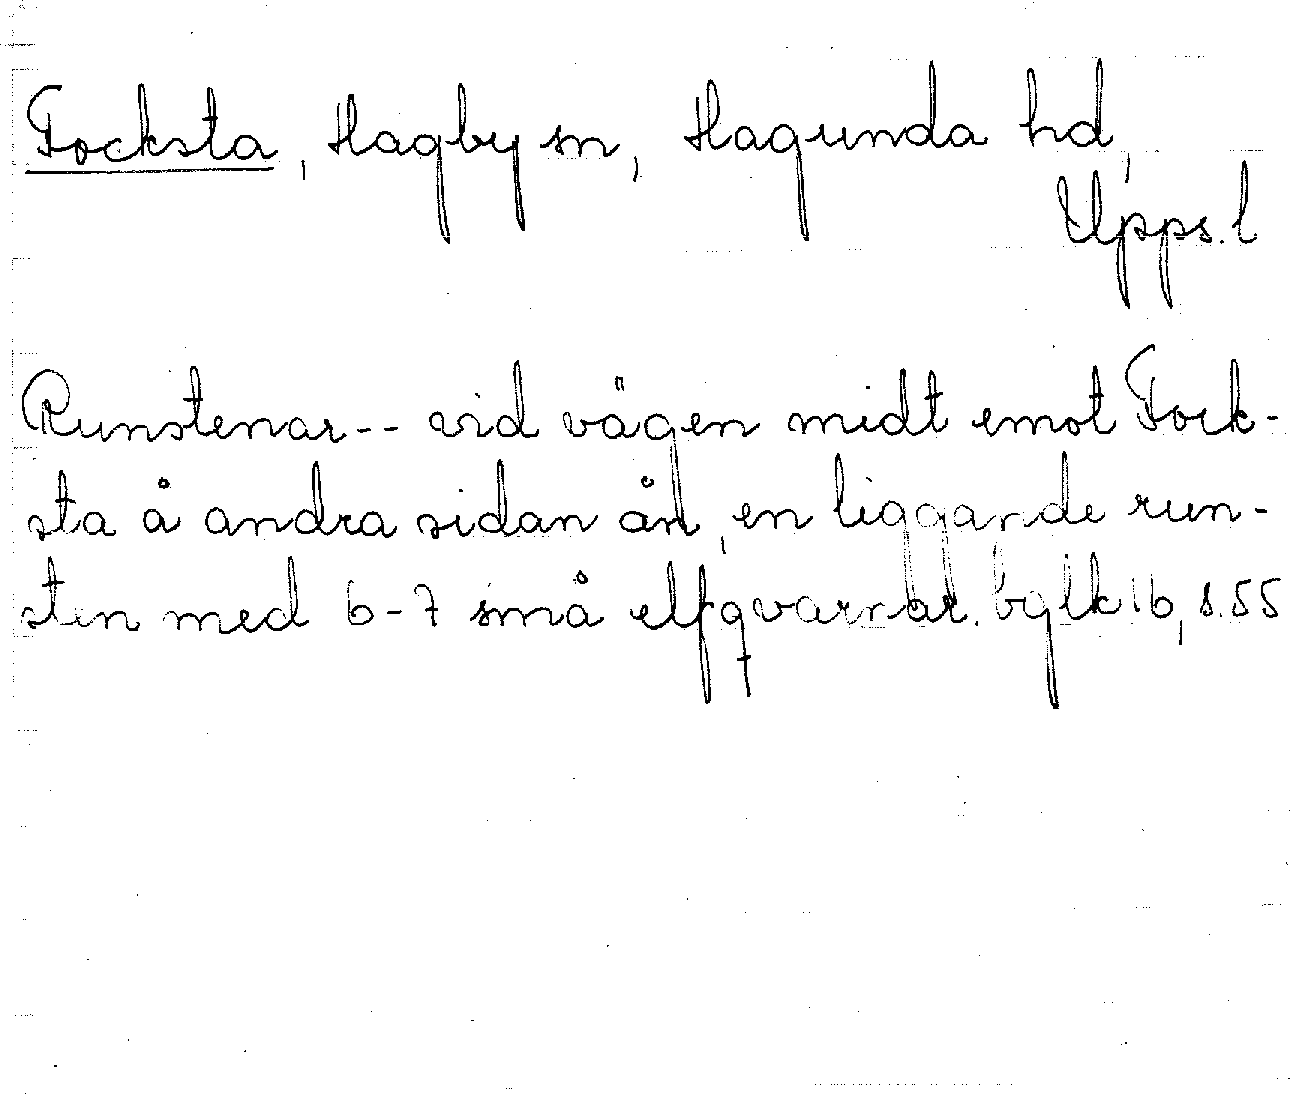 Focksta, Hagby sn, Hagunda hd,
Upps. l
Runstenar -- vid vägen midt emot Fock-
sta å andra sidan ån, en liggande run-
sten med 6-7 små elfqvarnar. bglk 16, s. 55